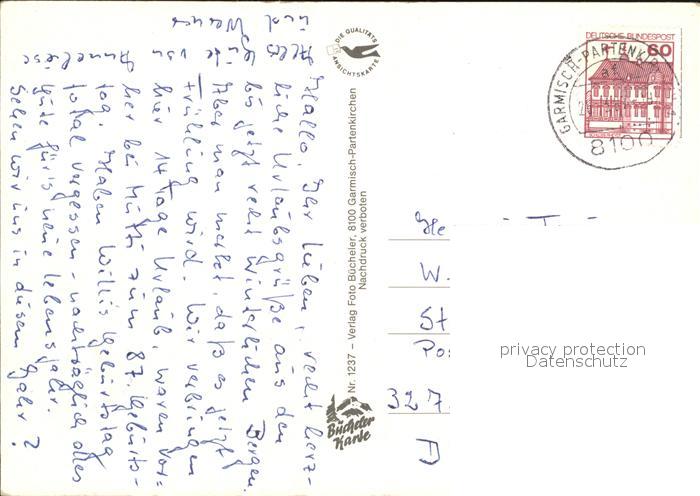 Hallo, Ihr Lieben, recht herz-
liche Urlaubsgrüße aus den
bis jetzt recht winterlichen Bergen.
Aber man merkt, daß es jetzt
Frühling wird. Wir verbringen
hier 14 Tage Urlaub, waren vor-
her bei Mutti zum 87. Geburts-
tag. Haben Willis Geburtstag
total vergessen - nachträglich alles
Gute für's neue Lebensjahr.
Sehen wir uns in diesem Jahr?
Alles
Gute
von
Anneliese
und
Werner
DIE QUALITÄTS
ANSICHTSKARTE
Nr. 1237 – Verlag Foto Bücheler, 8100 Garmisch-Partenkirchen
Nachdruck verboten
Bücheler
Karte
DEUTSCHE BUNDESPOST
60
GARMISCH-PARTENKIR
af
8100
W.
St
Po
327
D
privacy protection
Datenschutz